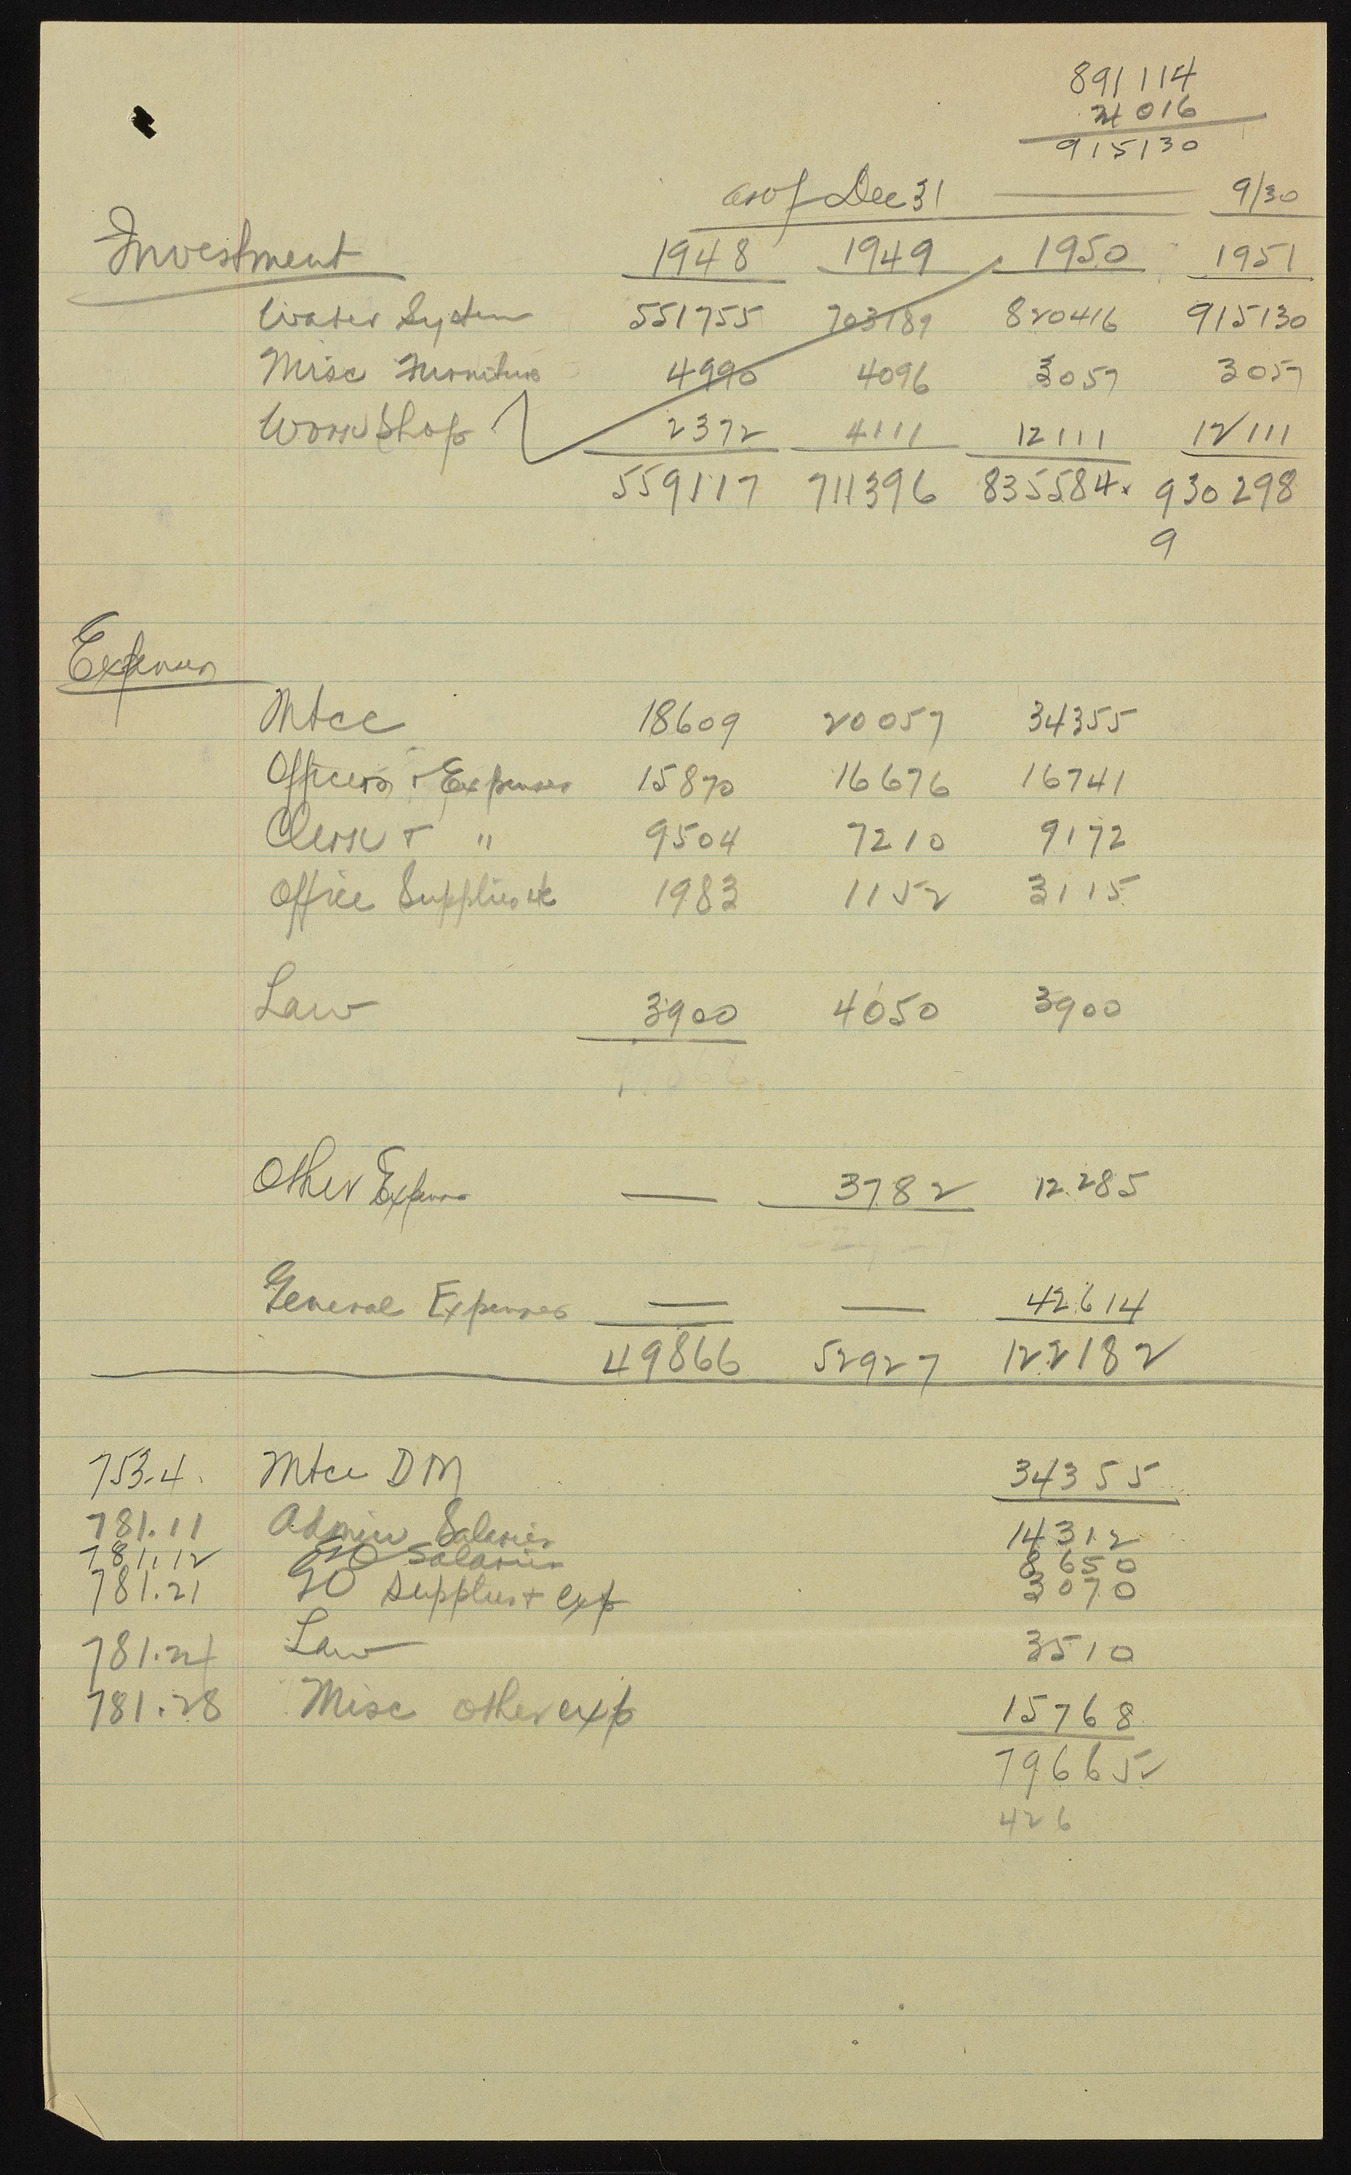 891114
24016
915130
as of Dec 31 9/30
Investment 1948 1949 1950 1951
Water System 551755 703189 820416 915130
Misc Furniture 4990 4096 3057 3057
Work Shop 2372 4111 12111 12111
559117 711396 835584 930298
9
Expenses
Mtce 18609 20057 34355
Officers + Expenses 15870 16676 16741
Clerk + " 9504 7210 9172
Office Supplies etc 1983 1152 3115
Law 3900 4050 3900
Other Expense — 3782 12285
General Expenses — — 42614
49866 52927 122182
753.4. Mtce DM 34355
781.11 Admin Salaries 14312
781.12 GO Salaries 8650
781.21 GO Supplies + Exp 3070
781.24 Law 3510
781.28 Misc other exp 15768
79665
426